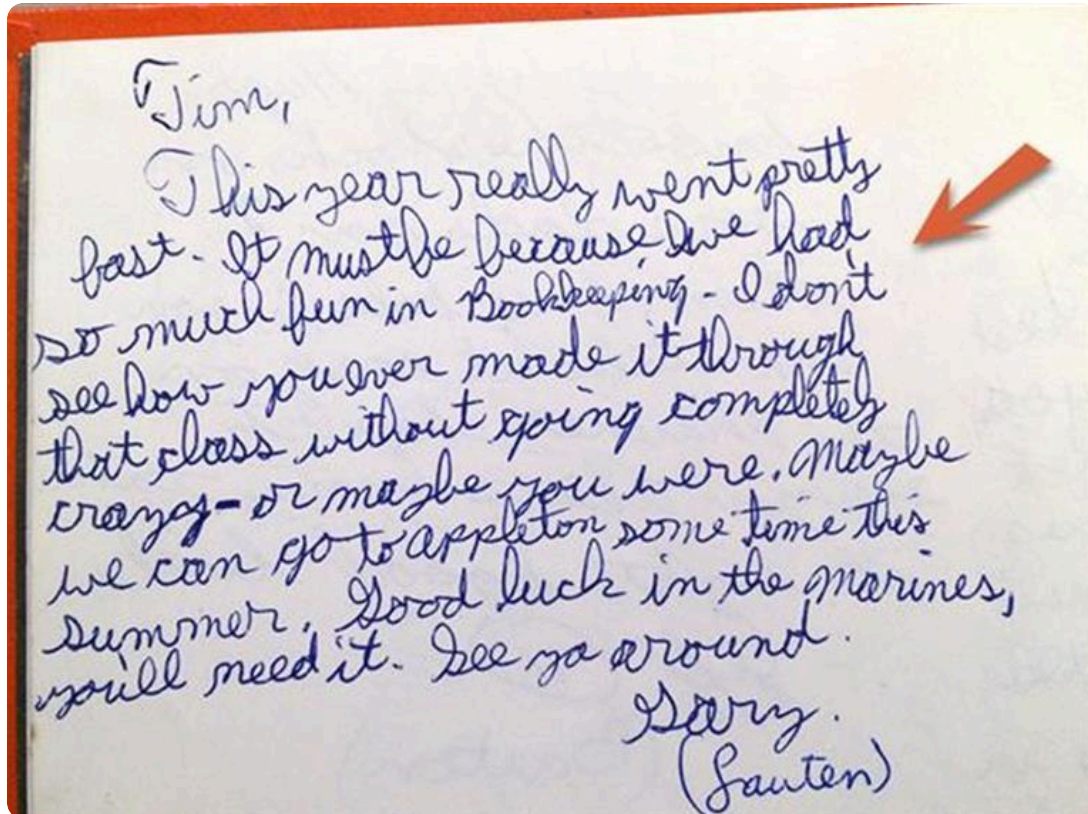 Tim,
This year really went pretty
fast. It must be because we had
so much fun in Bookkeeping - I don't
see how you ever made it through
that class without going completely
crazy - or maybe you were. Maybe
we can go to Appleton some time this
summer. Good luck in the Marines,
you'll need it. See ya around.
Gary.
(Lauten)